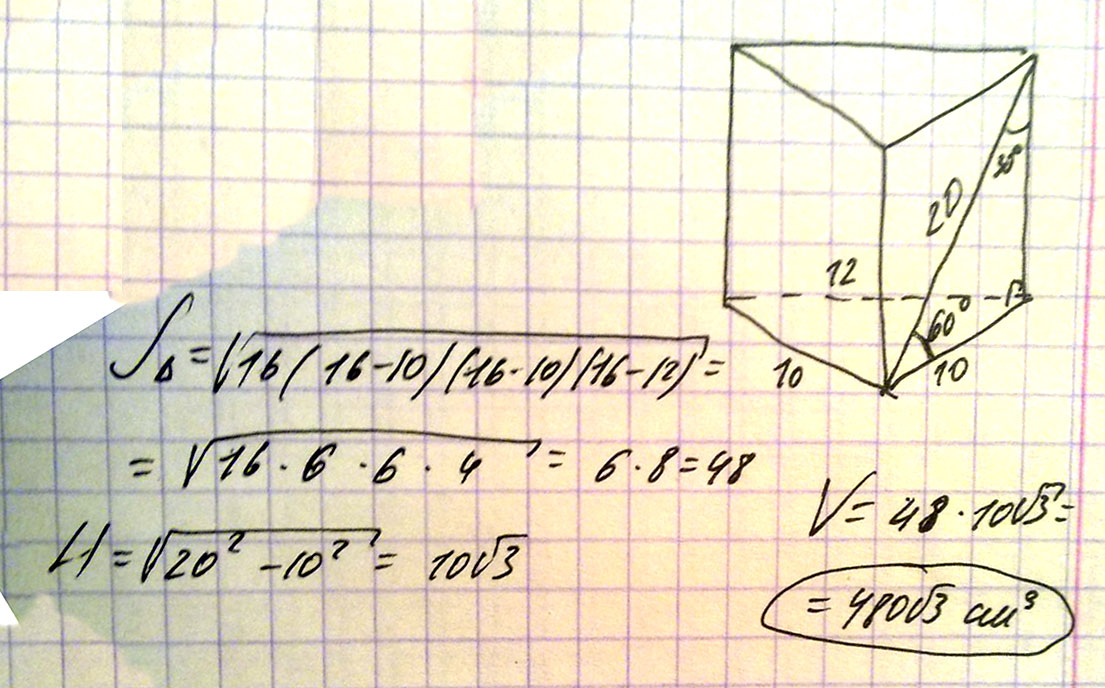 30°
20
12
60°
10
10
S△ = √16(16-10)(16-10)(16-12) =
= √16·6·6·4 = 6·8=48
H = √20²-10² = 10√3
V = 48·10√3 =
= 480√3 см³